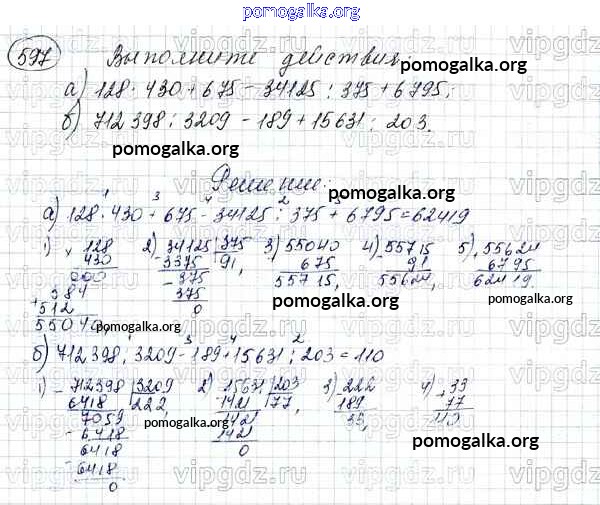 pomogalka.org
597 Выполните действия
а) 128 · 430 + 675 - 34125 : 375 + 6795;
б) 712398 : 3209 - 189 + 15631 : 203.
Решение:
1 3 4 2
а) 128 · 430 + 675 - 34125 : 375 + 6795 = 62419
1) 128 2) 34125 375 3) 55040 4) 55715 5) 55624
430 3375 91, 675 91 6795
000 375 55715, 55624, 62419
384 375
512 0
55040
3 4 2
б) 712398 : 3209 - 189 + 15631 : 203 = 110
1) 712398 3209 2) 15631 203 3) 222 4) 33
6418 222, 1421 77, 189 77
7059 1421 33, 110
6418 1421
6418 0
6418
0